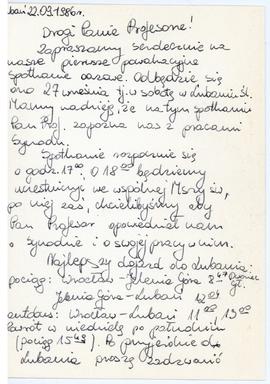 bań 22.09.1986r.
Drogi Panie Profesorze!
Zapraszamy serdecznie na
nasze pierwsze powakacyjne
spotkanie oazowe. Odbędzie się
ono 27 września tj. w sobotę w Lubaniu Śl.
Mamy nadzieję, że na tym spotkaniu
Pan Prof. zapozna nas z pracami
Synodu.
Spotkanie rozpocznie się
o godz. 17⁰⁰. O 18⁰⁰ będziemy
uczestniczyć we wspólnej Mszy św,
po niej zaś, chcielibyśmy aby
Pan Profesor opowiedział nam
o Synodzie i o swojej pracy w nim.
Najlepszy dojazd do Lubania:
pociąg: Wrocław - Jelenia Góra 8⁴⁹ Gł.
Jelenia Góra - Lubań 12²⁴
autobus: Wrocław - Lubań 11⁰⁰, 13⁰⁰
Powrót w niedzielę po południu
(pociąg 15⁴³). Po przyjeździe do
Lubania proszę zadzwonić